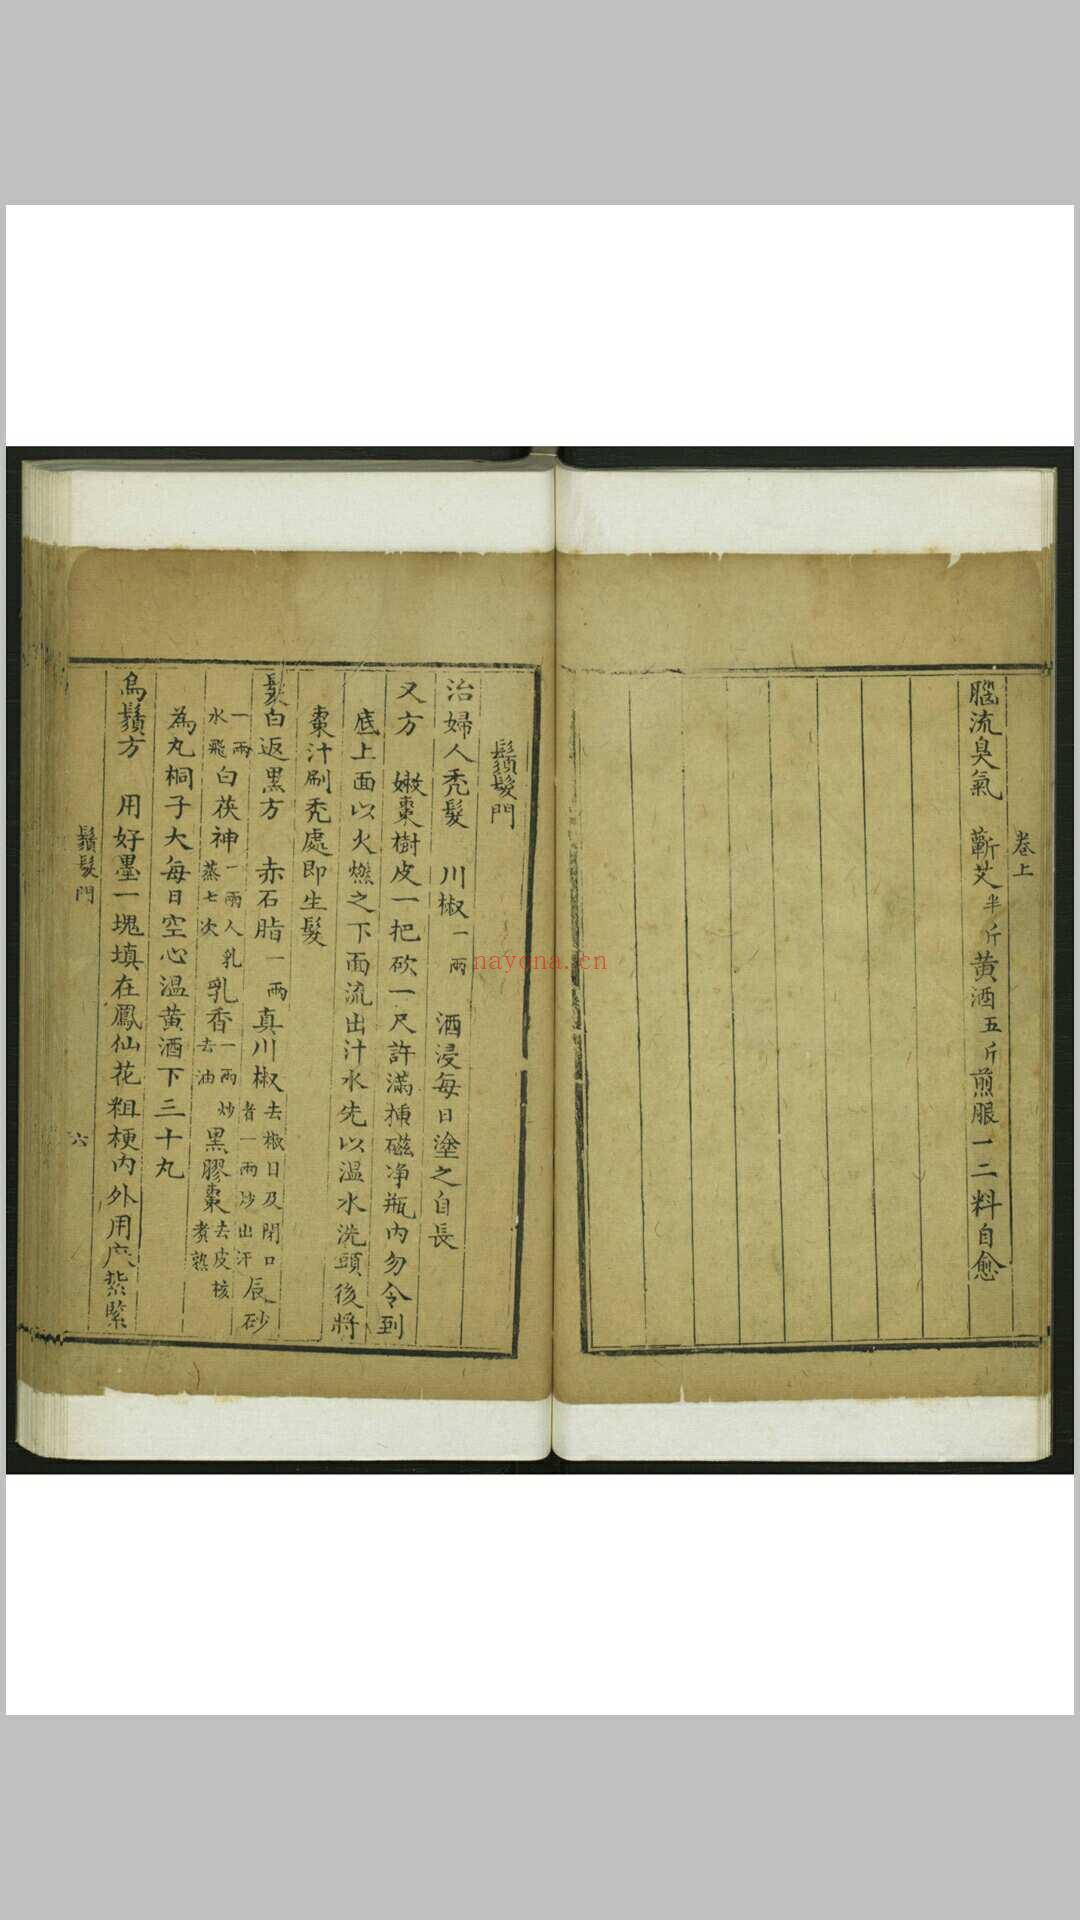 卷上
腦流臭氣　蘄艾半斤黃酒五斤煎服一二料自愈
鬚髮門
治婦人禿髮　川椒一兩　酒浸每日塗之自長
又方　嫩棗樹皮一把砍一尺許滿插磁净瓶内勿令到
底上面以火燃之下面流出汁水先以溫水洗頭後將
棗汁刷禿處即生髮
髮白返黑方　赤石脂一兩真川椒去椒目及閉口者一兩炒出汗辰砂
一兩水飛白茯神一兩人乳蒸七次乳香一兩炒去油黑膠棗去皮核煮熟
為丸桐子大每日空心溫黃酒下三十丸
烏鬚方　用好墨一塊填在鳳仙花粗梗内外用麻紥緊
鬚髮門
六
nayona.cn